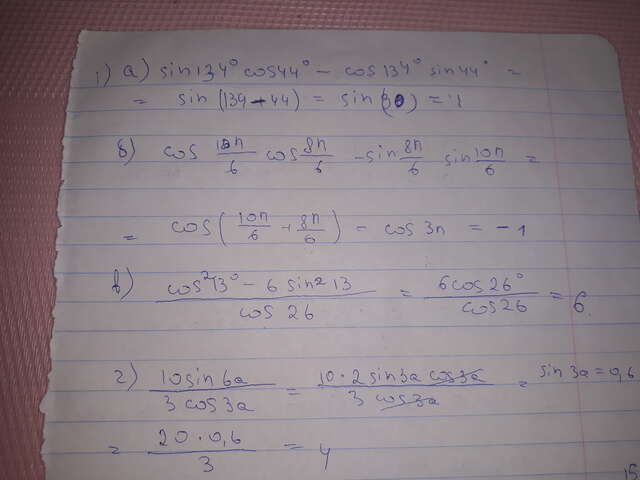 1) a) sin134° cos44° - cos134° sin44° =
= sin (134-44) = sin (90) = 1
б) cos 10π/6 cos 8π/6 - sin 8π/6 sin 10π/6 =
= cos (10π/6 + 8π/6) = cos 3π = -1
в) cos²13° - 6 sin²13 / cos 26 = 6cos26° / cos26 = 6
2) 10sin6a / 3cos3a = 10·2sin3a cos3a / 3cos3a = sin3a = 0,6
= 20·0,6 / 3 = 4